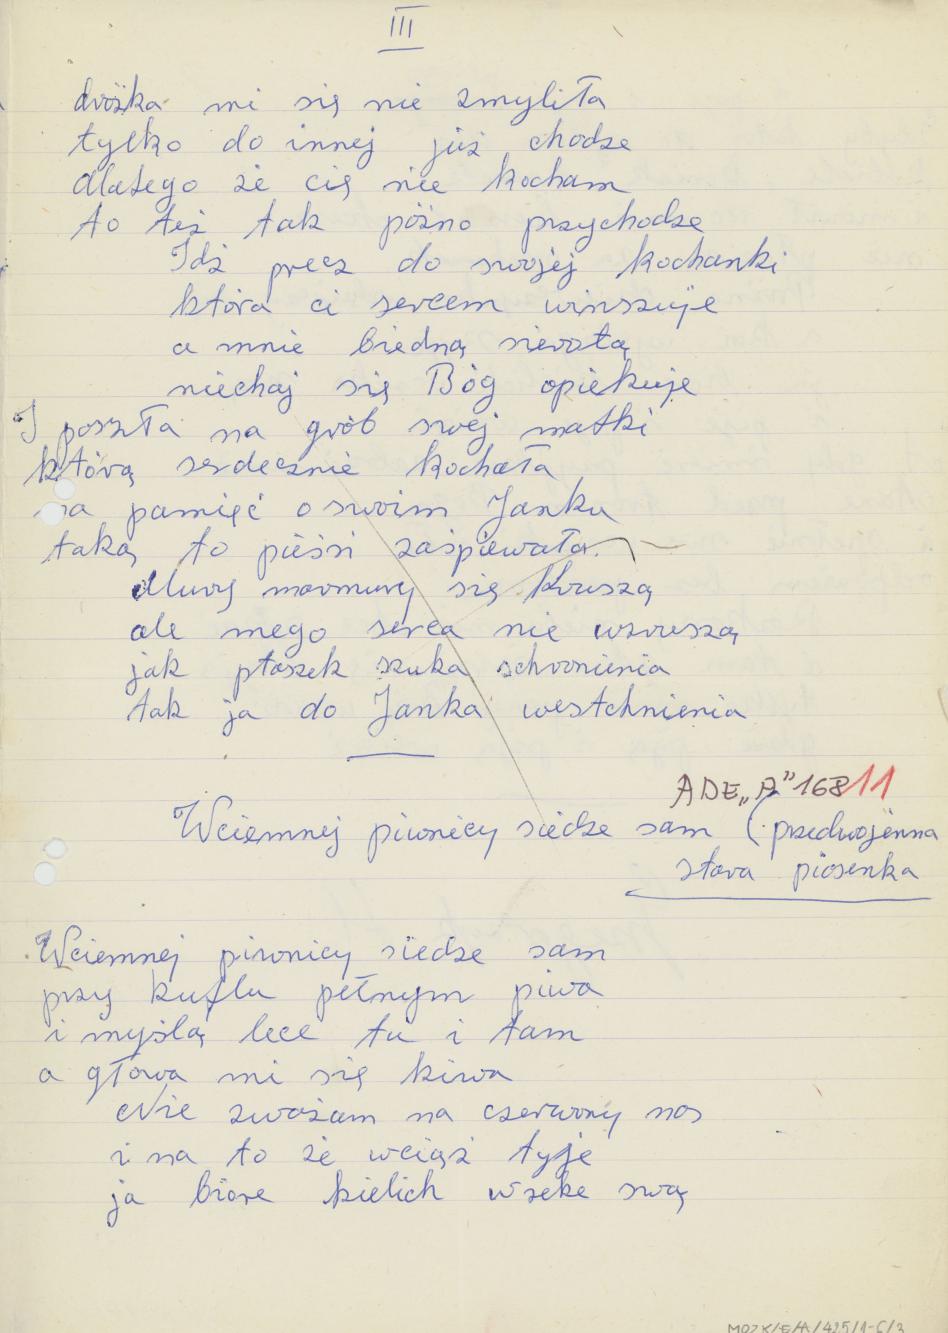 III
dróżka mi się nie zmyliła
tylko do innej już chodze
dlatego że cię nie kocham
to też tak późno przychodze
Idź precz do swojej kochanki
która ci sercem winszuje
a mnie biedną sierotą
niechaj się Bóg opiekuje
I poszła na grób swej matki
którą serdecznie kochała
na pamięć o swoim Janku
taką to pieśń zaśpiewała.
Mury marmury się kruszą
ale mego serca nie wzruszą
jak ptaszek szuka schronienia
tak ja do Janka westchnienia
ADE „A” 168 11
Wciemnej piwnicy siedze sam (przedwojenna
stara piosenka
Wciemnej piwnicy siedze sam
przy kuflu pełnym piwa
i myślą lece tu i tam
a głowa mi się kiwa
Nie zważam na czerwony nos
i na to że wciąż tyje
ja biore kielich w reke swą
MOZK/E/A/425/1-6/3